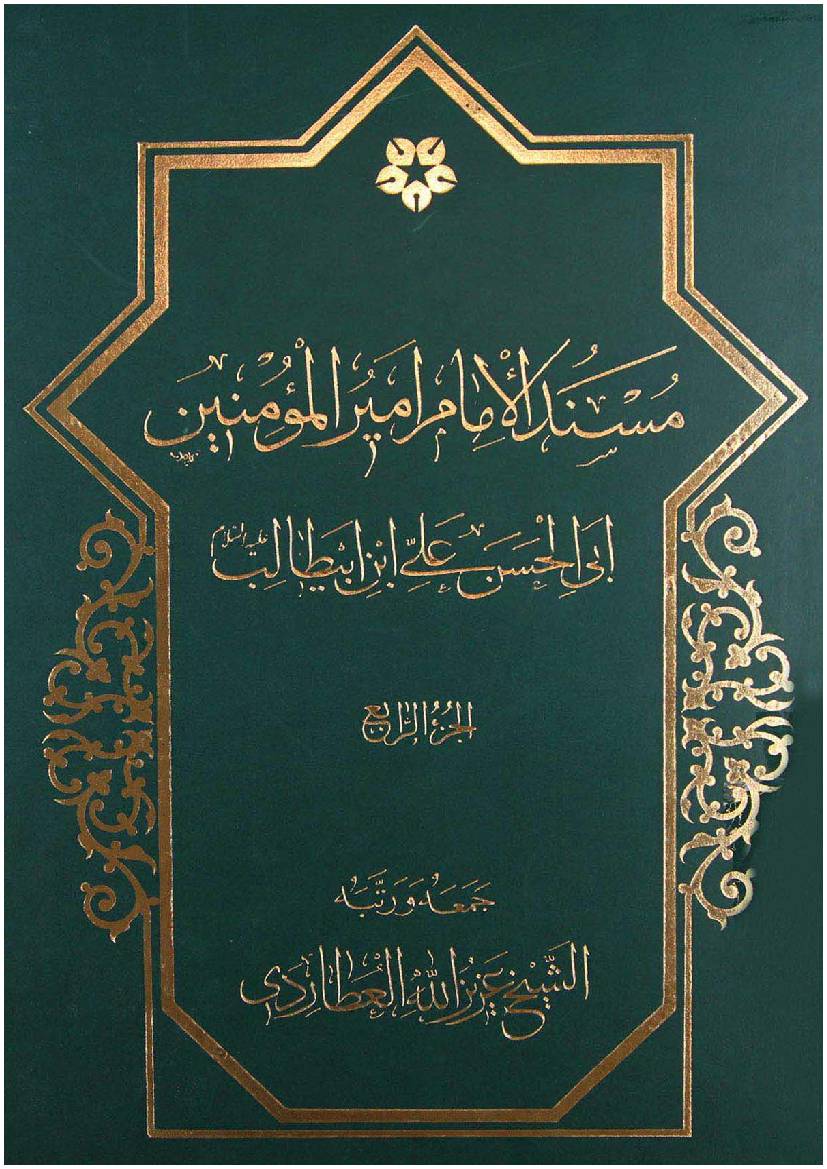 مُسْنَدُ الْإِمَامِ أَمِيرِ الْمُؤْمِنِينَ
أَبِي الْحَسَنِ عَلِيِّ ابْنِ ابيطالب عليه السلام
الجُزءُ الرَّابِع
جَمَعَهُ وَرَتَّبَهُ
الشَّيْخ عَزِيزُ اللهِ الْعُطَارِدِي